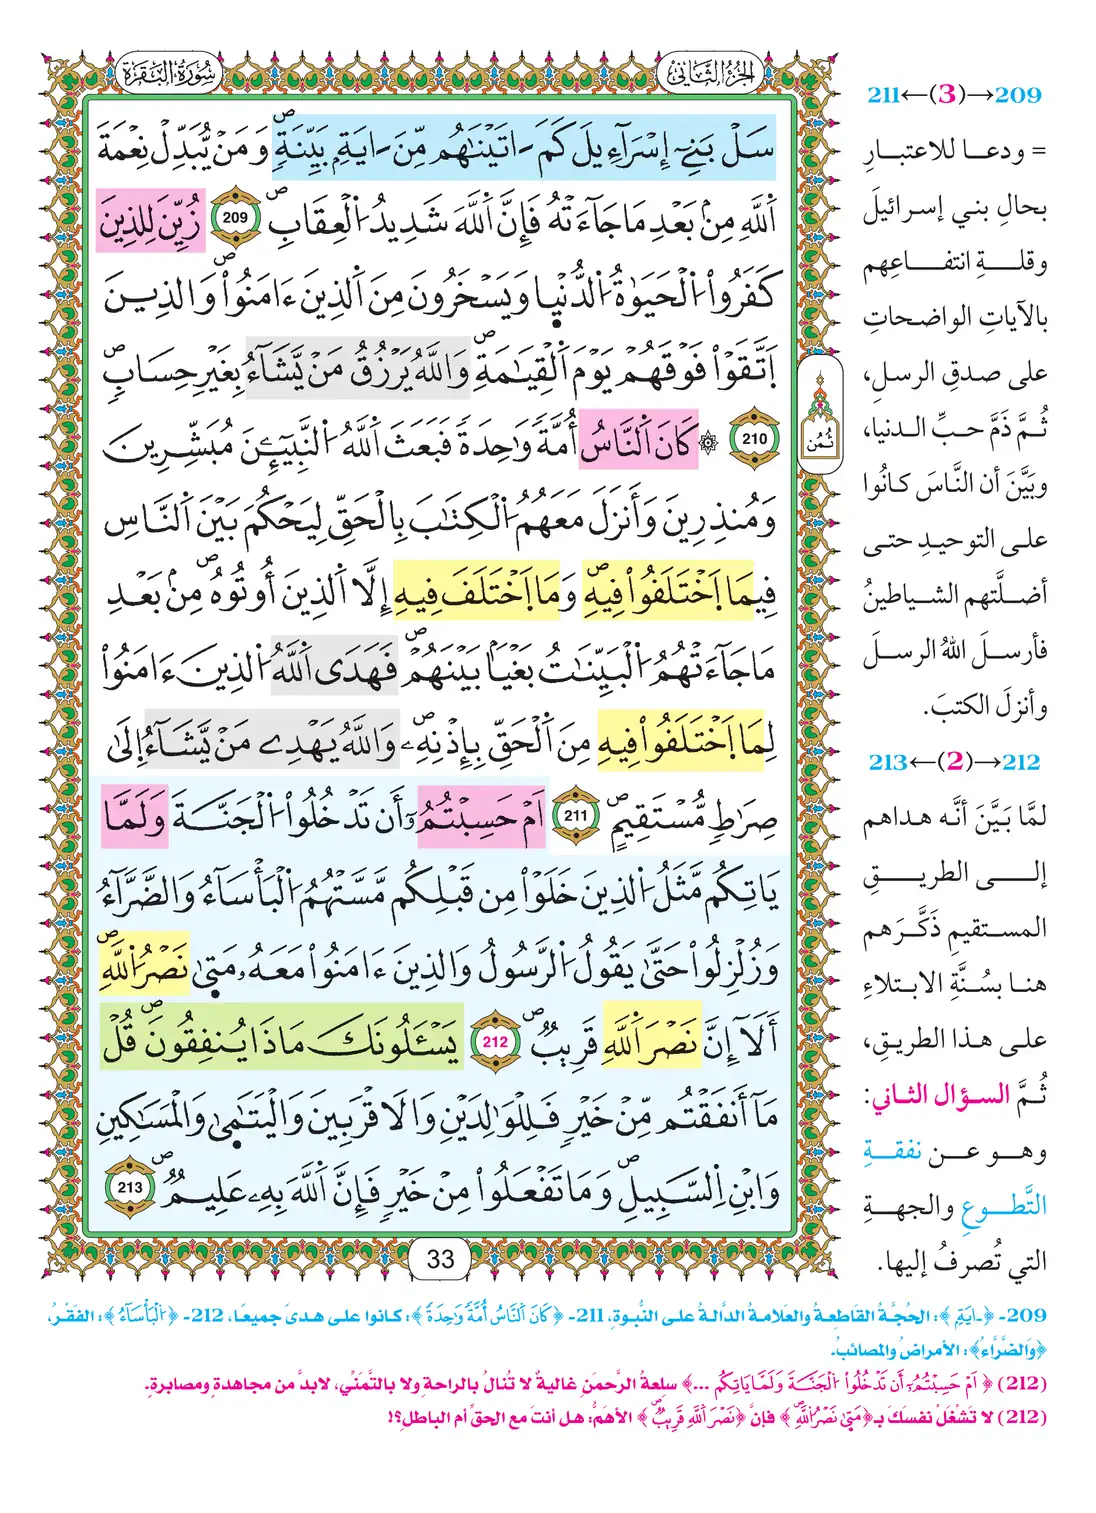 الجزء الثاني
سورة البقرة
سَلْ بَنِےٓ إِسْرَآءِيلَ كَمَ ـاتَيْنَٰهُم مِّنَ ـايَةِۢ بَيِّنَةٖۖ وَمَنْ يُّبَدِّلْ نِعْمَةَ
اَ۬للَّهِ مِنۢ بَعْدِ مَا جَآءَتْهُ فَإِنَّ اَ۬للَّهَ شَدِيدُ اُ۬لْعِقَابِۖ 209 زُيِّنَ لِلذِينَ
كَفَرُواْ اُ۬لْحَيَوٰةُ اُ۬لدُّنْي۪ا وَيَسْخَرُونَ مِنَ اَ۬لذِينَ ءَامَنُواْۖ وَالذِينَ
اَ۪تَّقَوْاْ فَوْقَهُمْ يَوْمَ اَ۬لْقِيَٰمَةِۖ وَاللَّهُ يَرْزُقُ مَنْ يَّشَآءُ بِغَيْرِ حِسَابٖۖ
210 ۞ كَانَ اَ۬لنَّاسُ أُمَّةٗ وَٰحِدَةٗ فَبَعَثَ اَ۬للَّهُ اُ۬لنَّبِيٓـِٕۧنَ مُبَشِّرِينَ
وَمُنذِرِينَ وَأَنزَلَ مَعَهُمُ اُ۬لْكِتَٰبَ بِالْحَقِّ لِيَحْكُمَ بَيْنَ اَ۬لنَّاسِ
فِيمَا اَ۪خْتَلَفُواْ فِيهِۖ وَمَا اَ۪خْتَلَفَ فِيهِ إِلَّا اَ۬لذِينَ أُوتُوهُۖ مِنۢ بَعْدِ
مَا جَآءَتْهُمُ اُ۬لْبَيِّنَٰتُ بَغْيَاۢ بَيْنَهُمْۖ فَهَدَى اَ۬للَّهُ اُ۬لذِينَ ءَامَنُواْ
لِمَا اَ۪خْتَلَفُواْ فِيهِ مِنَ اَ۬لْحَقِّ بِإِذْنِهِۦۖ وَاللَّهُ يَهْدِے مَنْ يَّشَآءُ اِ۪لَىٰ
صِرَٰطٖ مُّسْتَقِيمٍۖ 211 اَمْ حَسِبْتُمُۥٓ أَن تَدْخُلُواْ اُ۬لْجَنَّةَ وَلَمَّا
يَاتِكُم مَّثَلُ اُ۬لذِينَ خَلَوْاْ مِن قَبْلِكُم مَّسَّتْهُمُ اُ۬لْبَأْسَآءُ وَالضَّرَّآءُ
وَزُلْزِلُواْ حَتَّىٰ يَقُولُ اُ۬لرَّسُولُ وَالذِينَ ءَامَنُواْ مَعَهُۥ مَت۪ىٰ نَصْرُ اُ۬للَّهِۖ
أَلَآ إِنَّ نَصْرَ اَ۬للَّهِ قَرِيبٞۖ 212 يَسْـَٔلُونَكَ مَاذَا يُنفِقُونَۖ قُلْ
مَآ أَنفَقْتُم مِّنْ خَيْرٖ فَلِلْوَٰلِدَيْنِ وَالَاقْرَبِينَ وَالْيَتَٰم۪ىٰ وَالْمَسَٰكِينِ
وَابْنِ اِ۬لسَّبِيلِۖ وَمَا تَفْعَلُواْ مِنْ خَيْرٖ فَإِنَّ اَ۬للَّهَ بِهِۦ عَلِيمٞۖ 213
ثُمُن
33
209→(3)←211
= ودعا للاعتبارِ
بحالِ بني إسرائيلَ
وقلةِ انتفاعِهم
بالآياتِ الواضحاتِ
على صدقِ الرسلِ،
ثُمَّ ذَمَّ حبِّ الدنيا،
وبَيَّنَ أن النَّاسَ كانُوا
على التوحيدِ حتى
أضلَّتهم الشياطينُ
فأرسلَ اللهُ الرسلَ
وأنزلَ الكتبَ.
212→(2)←213
لمَّا بَيَّنَ أنَّه هداهم
إلى الطريقِ
المستقيمِ ذَكَّرَهم
هنا بسُنَّةِ الابتلاءِ
على هذا الطريقِ،
ثُمَّ السؤال الثاني:
وهو عن نفقةِ
التَّطوعِ والجهةِ
التي تُصرفُ إليها.
209- ﴿ـايَةِۢ﴾: الحُجَّةُ القاطعةُ والعلامةُ الدَّالةُ على النُّبوةِ، 211- ﴿كَانَ اَ۬لنَّاسُ أُمَّةٗ وَٰحِدَةٗ﴾: كانوا على هدىً جميعًا، 212- ﴿اُ۬لْبَأْسَآءُ﴾: الفَقْرُ،
﴿وَالضَّرَّآءُ﴾: الأمراضُ والمصائبُ.
(212) ﴿اَمْ حَسِبْتُمُۥٓ أَن تَدْخُلُواْ اُ۬لْجَنَّةَ وَلَمَّا يَاتِكُم ...﴾ سلعةُ الرَّحمنِ غاليةٌ لا تُنالُ بالراحةِ ولا بالتَّمنِّي، لابدَّ من مجاهدةٍ ومصابرةٍ.
(212) لا تَشْغَلْ نفسَكَ بـ﴿مَت۪ىٰ نَصْرُ اُ۬للَّهِۖ﴾ فإنَّ ﴿نَصْرَ اَ۬للَّهِ قَرِيبٞۖ﴾ الأهمُّ: هل أنتَ مع الحقِّ أم الباطلِ؟!